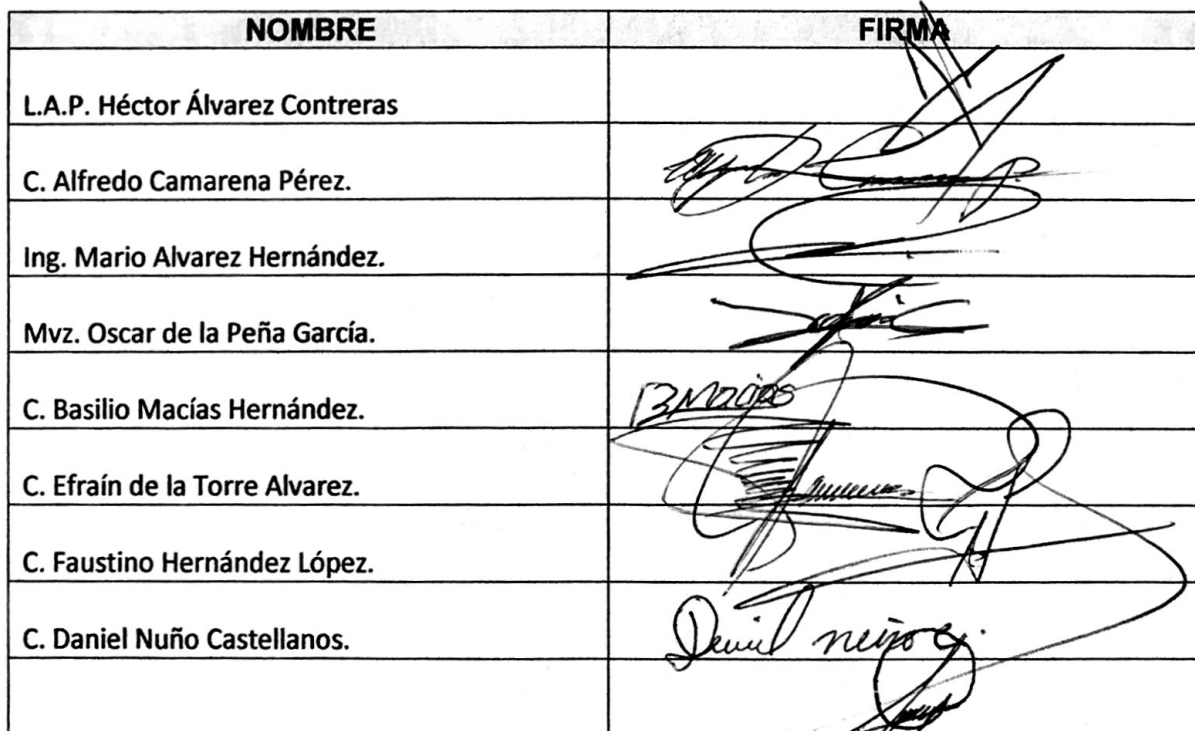 NOMBRE FIRMA
L.A.P. Héctor Álvarez Contreras
C. Alfredo Camarena Pérez.
Ing. Mario Alvarez Hernández.
Mvz. Oscar de la Peña García.
C. Basilio Macías Hernández. BMacías
C. Efraín de la Torre Alvarez.
C. Faustino Hernández López.
C. Daniel Nuño Castellanos. Daniel Nuño C.